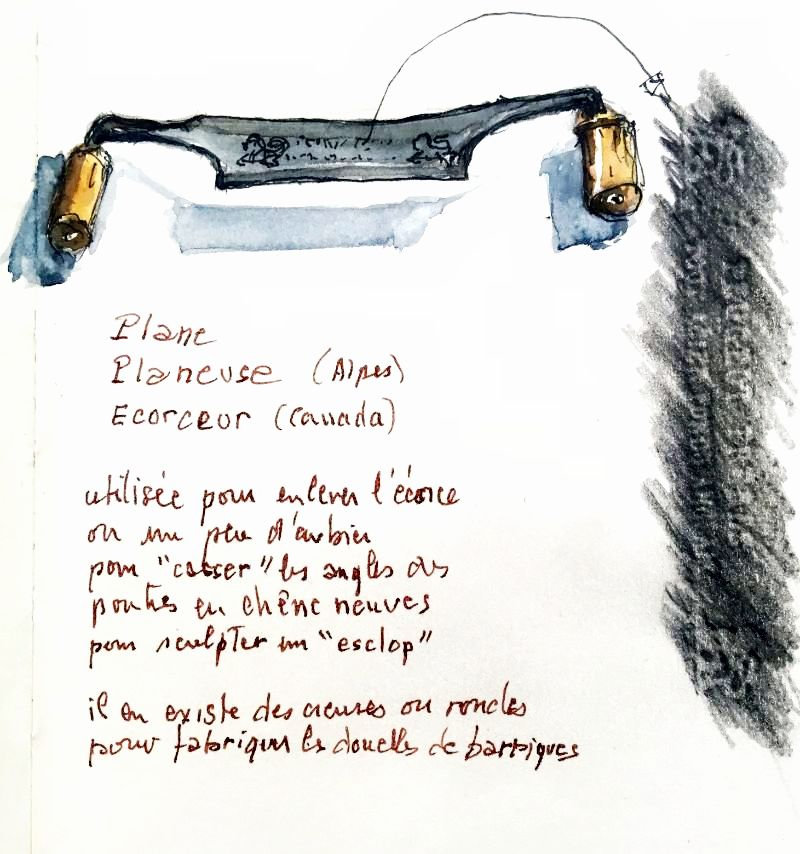 Plane
Planeuse (Alpes)
Ecorceur (Canada)
utilisée pour enlever l'écorce
ou un peu d'aubier
pour "casser" les angles des
poutres en chêne neuves
pour sculpter un "esclop"
il en existe des creuses ou rondes
pour fabriquer les douelles de barriques